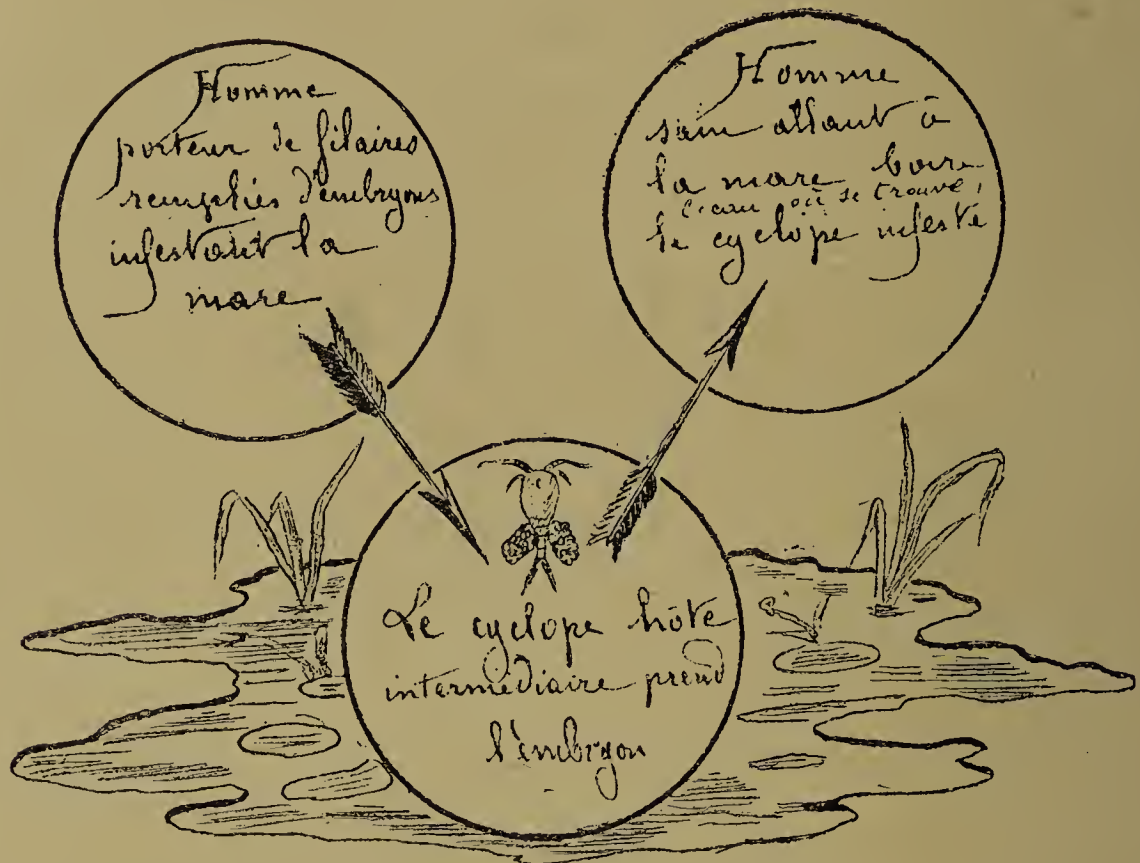 Homme
porteur de filaires
remplies d'embryons
infestant la
mare
Homme
sain allant à
la mare boire
l'eau où se trouve
le cyclope infesté
Le cyclope hôte
intermédiaire prend
l'embryon